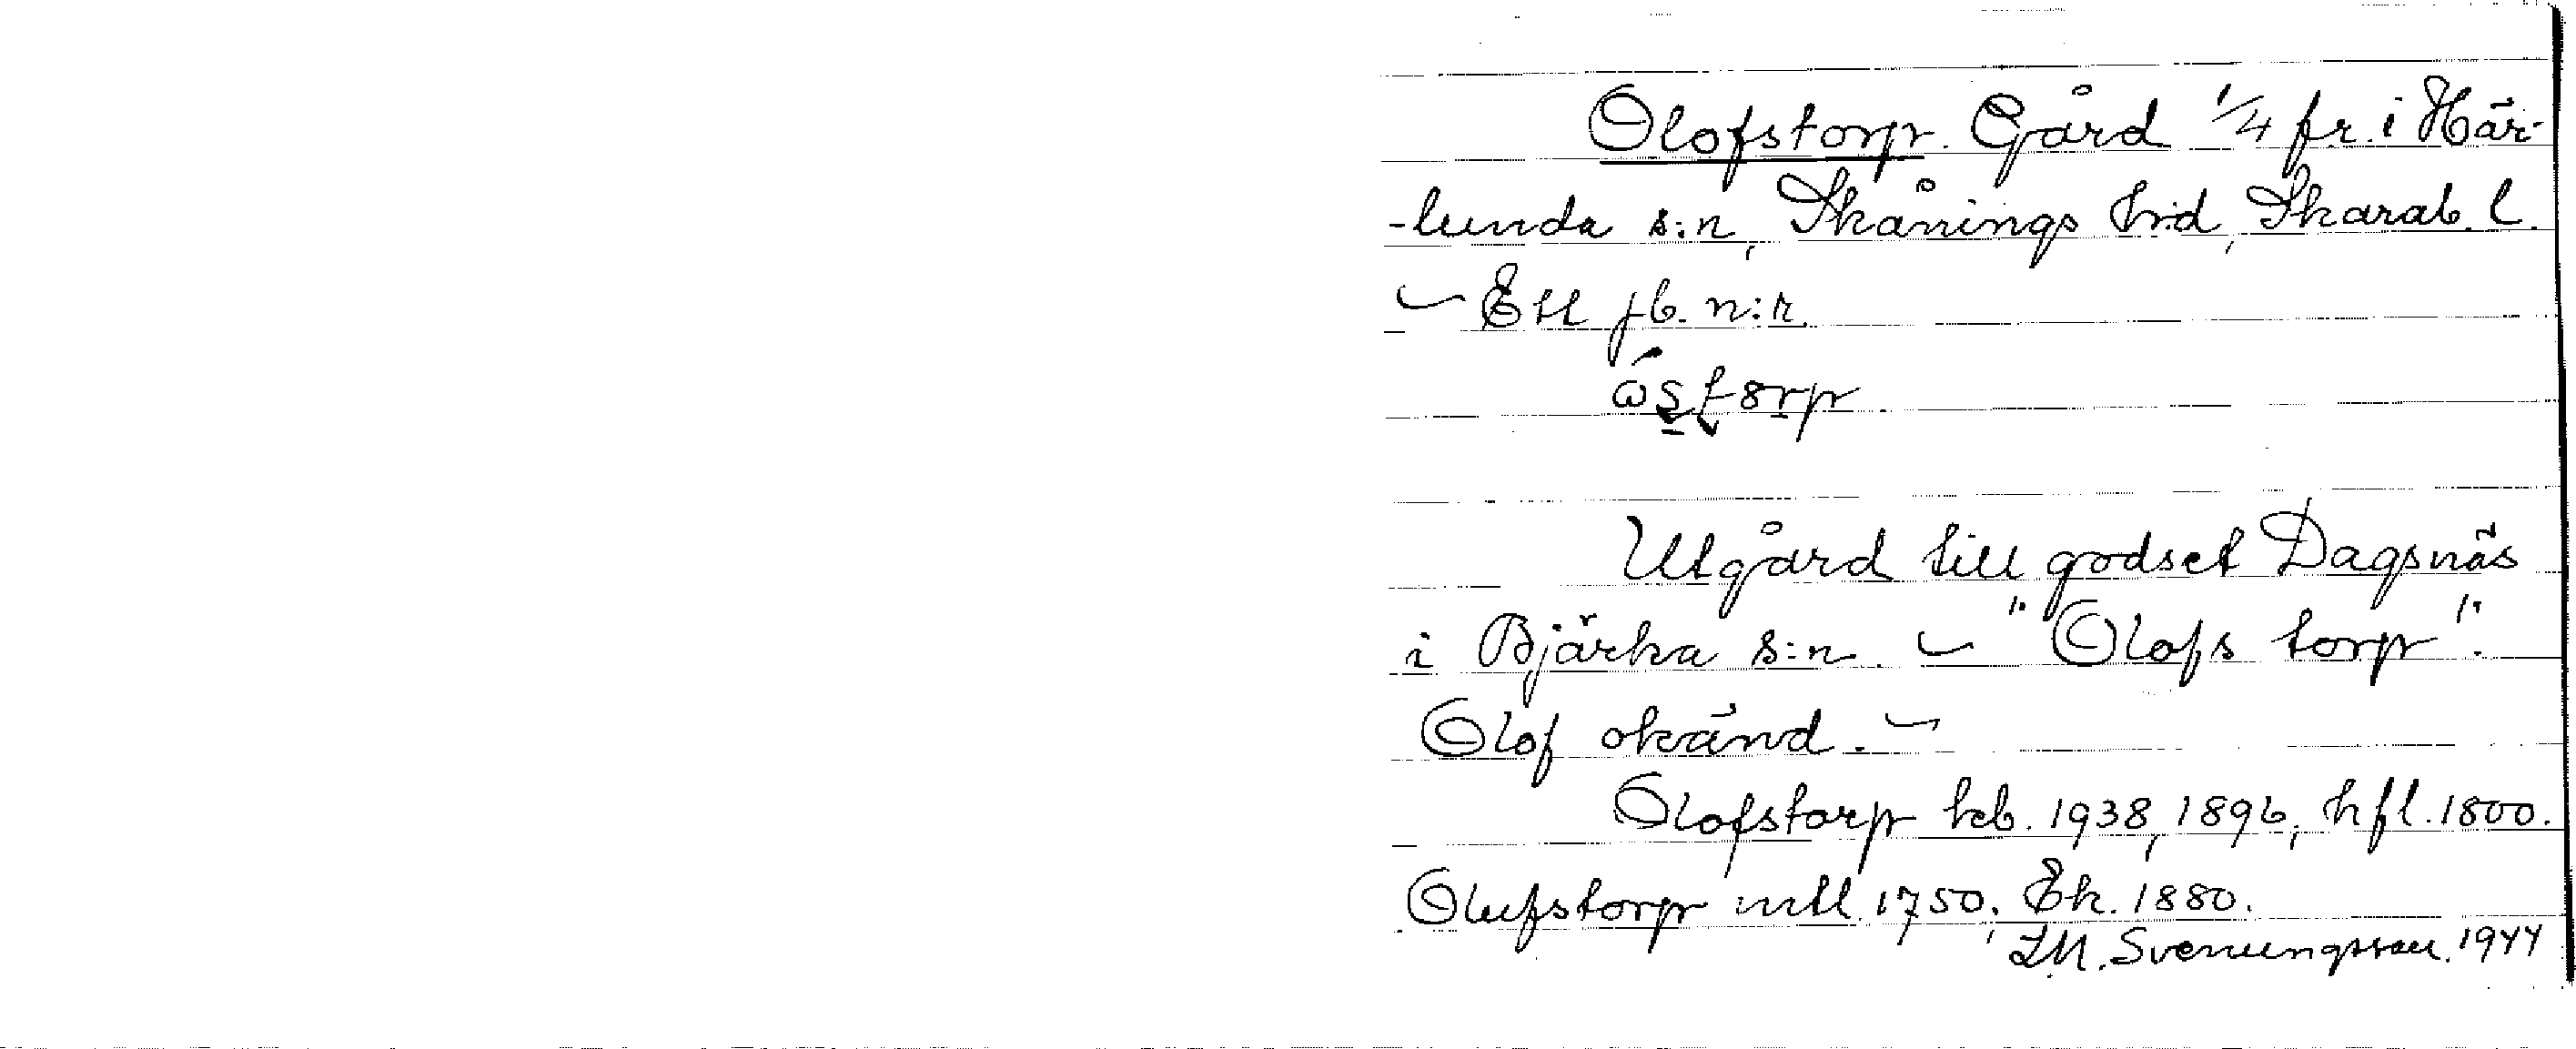 Olofstorp. Gård 1/4 fr. i Här-
-lunda s:n, Skånings hd, Skarab. l.
– Ett jb. n:r.
Utgård till godset Dagsnäs
i Bjärka s:n. – "Olofs torp".
Olof okänd. –
Olofstorp kb. 1938, 1896, hfl. 1800.
Olufstorp mtl 1750, Ek. 1880.
I.M. Svenungsson. 1944